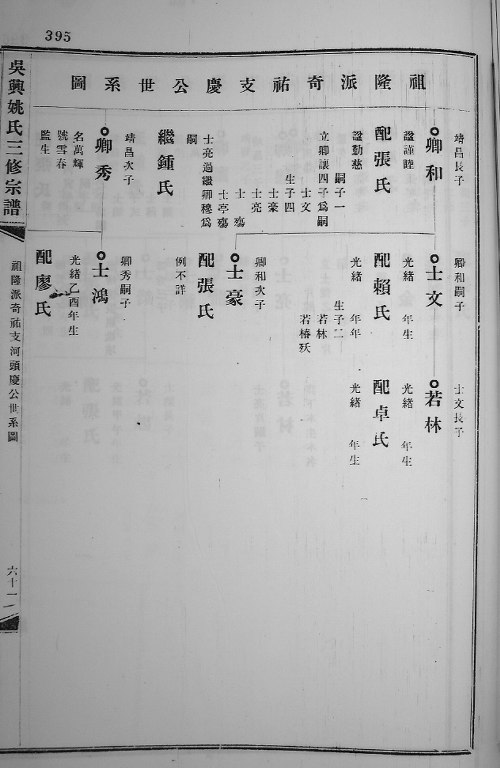 395
吳興姚氏三修宗譜
祖隆派奇祐支河頭慶公世系圖
六十一
祖隆派奇祐支慶公世系圖
靖昌長子
卿和
諡謹睦
配張氏
諡勤慈
嗣子一
立卿讓四子為嗣
士文
生子四
士豪
士亮
士殤
士亭殤
士亮過繼卿穆為
嗣
繼鍾氏
靖昌次子
卿秀
名萬輝
號雪春
監生
卿和嗣子
士文
光緒 年生
配賴氏
光緒 年年
生子二
若林
若椿殀
卿和次子
士豪
配張氏
例不詳
卿秀嗣子
士鴻
光緒乙酉年生
配廖氏
士文長子
若林
光緒 年生
配卓氏
光緒 年生